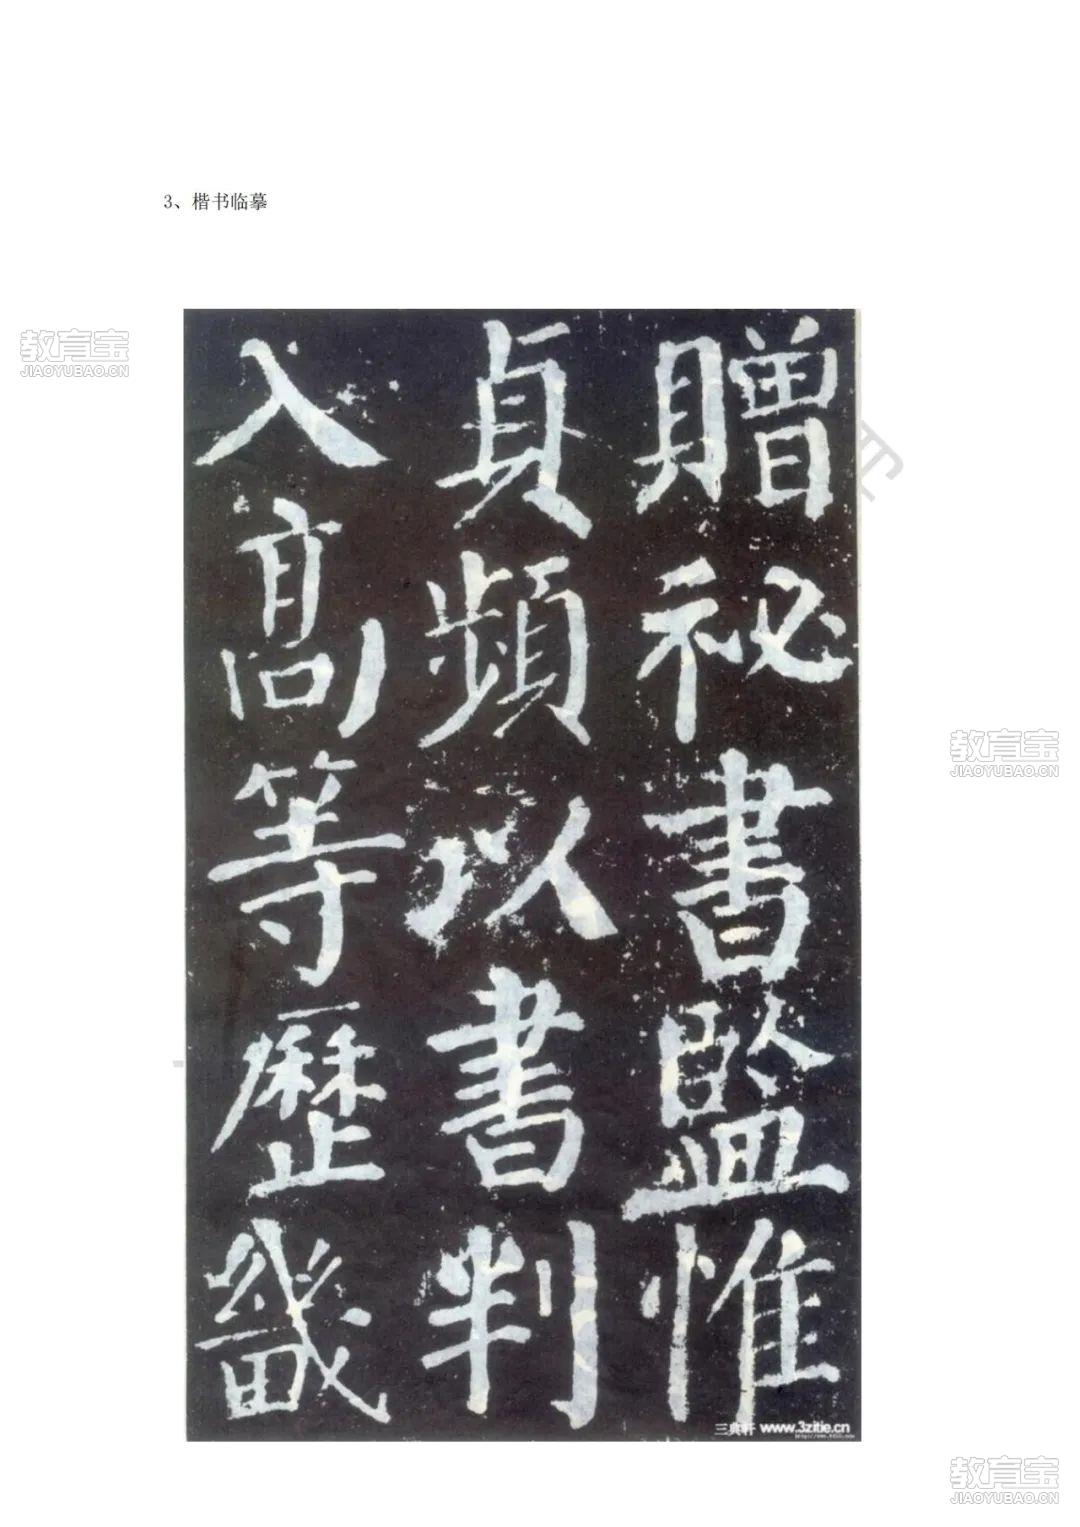 3、楷书临摹
贈祕書監惟
貞頻以書判
入高等歷畿
三典轩 www.3zitie.cn
教育宝
JIAOYUBAO.CN
教育宝
JIAOYUBAO.CN
教育宝
JIAOYUBAO.CN